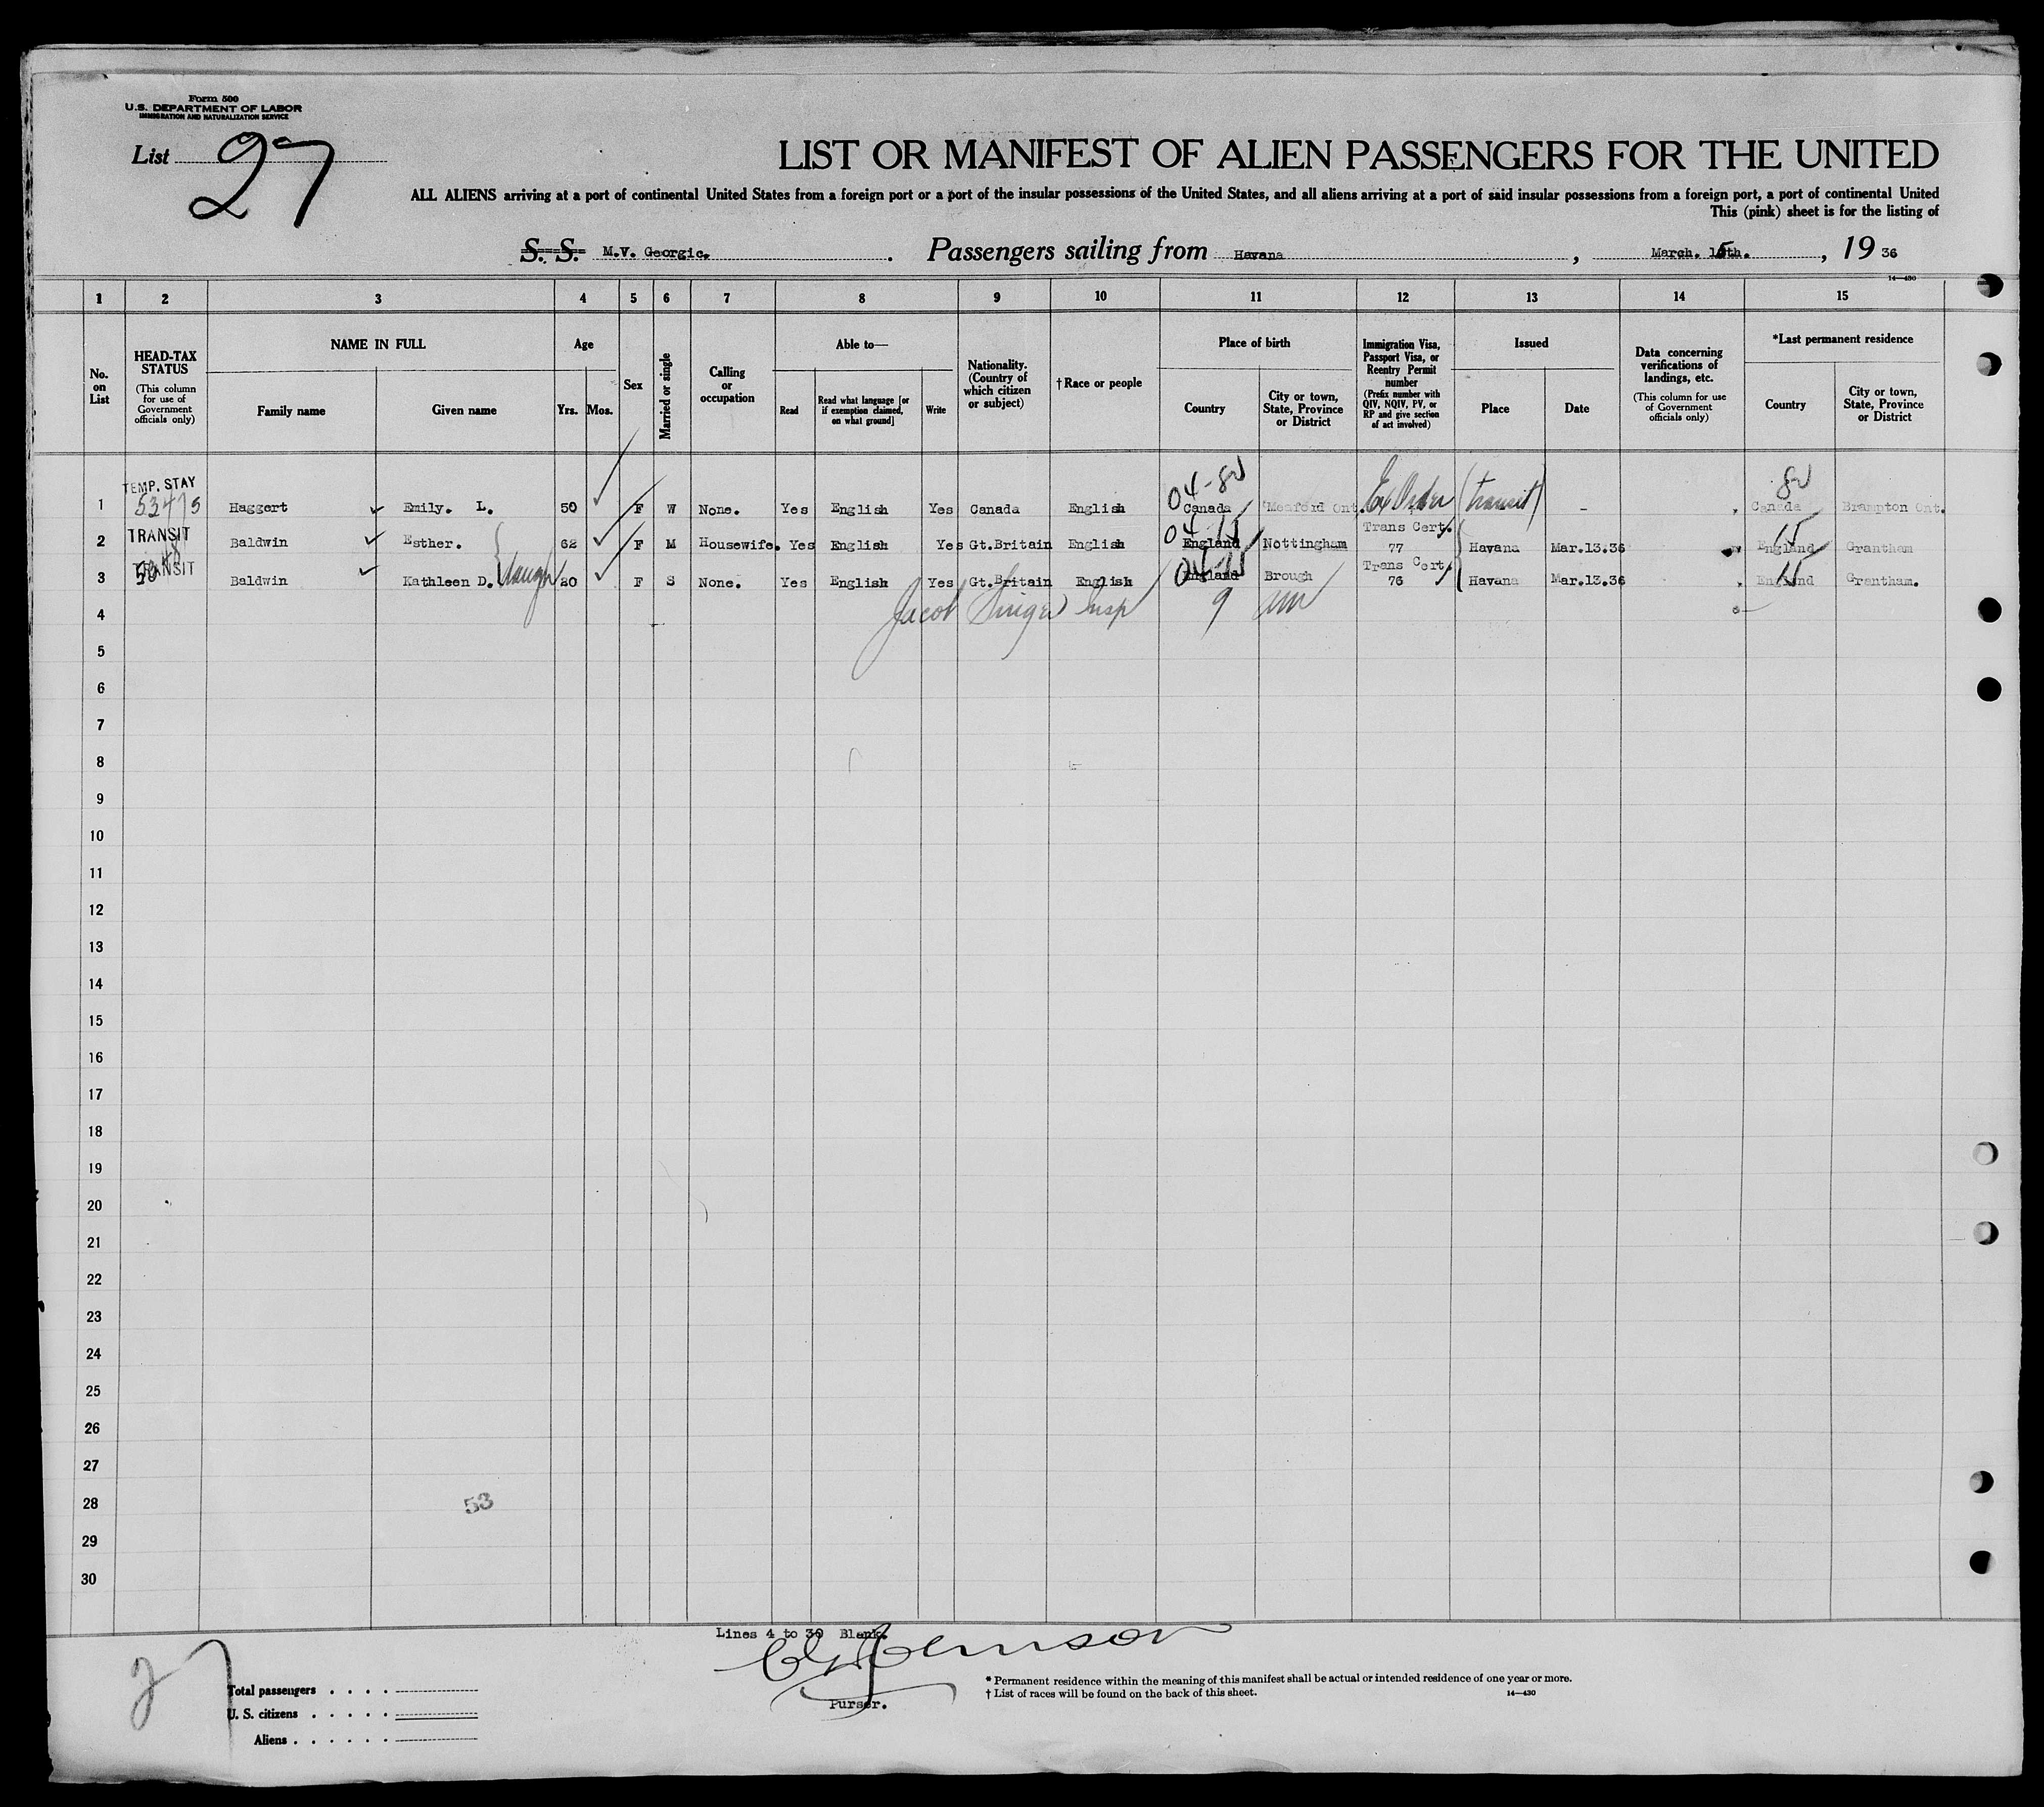 Form 500
U.S. DEPARTMENT OF LABOR
IMMIGRATION AND NATURALIZATION SERVICE
List 27
LIST OR MANIFEST OF ALIEN PASSENGERS FOR THE UNITED
ALL ALIENS arriving at a port of continental United States from a foreign port or a port of the insular possessions of the United States, and all aliens arriving at a port of said insular possessions from a foreign port, a port of continental United
This (pink) sheet is for the listing of
S. S. M.V. Georgic. Passengers sailing from Havana, March. 15th., 19 36
14—430
1 2 3 4 5 6 7 8 9 10 11 12 13 14 15
No. on List
HEAD-TAX STATUS (This column for use of Government officials only)
NAME IN FULL
Family name Given name
Age
Yrs. Mos.
Sex
Married or single
Calling or occupation
Able to—
Read
Read what language [or if exemption claimed, on what ground]
Write
Nationality. (Country of which citizen or subject)
† Race or people
Place of birth
Country
City or town, State, Province or District
Immigration Visa, Passport Visa, or Reentry Permit number (Prefix number with QIV, NQIV, PV, or RP and give section of act involved)
Issued
Place Date
Data concerning verifications of landings, etc. (This column for use of Government officials only)
*Last permanent residence
Country
City or town, State, Province or District
TEMP. STAY 04-82 82
1 Haggert Emily. L. 50 F W None. Yes English Yes Canada English Canada Meaford Ont. Ex Order (transit) - Canada Brampton Ont.
TRANSIT Trans Cert.
2 Baldwin Esther. 62 F M Housewife. Yes English Yes Gt.Britain English England Nottingham 77 Havana Mar.13.36 England Grantham
TRANSIT Trans Cert.
3 Baldwin Kathleen D. 20 F S None. Yes English Yes Gt.Britain English England Brough 76 Havana Mar.13.36 England Grantham.
4 Jacob Singer Insp 9 am
5
6
7
8
9
10
11
12
13
14
15
16
17
18
19
20
21
22
23
24
25
26
27
28 53
29
30
Lines 4 to 30 Blank.
Purser.
27
Total passengers . . . .
U. S. citizens . . . . .
Aliens . . . . . .
* Permanent residence within the meaning of this manifest shall be actual or intended residence of one year or more.
† List of races will be found on the back of this sheet.
14—430